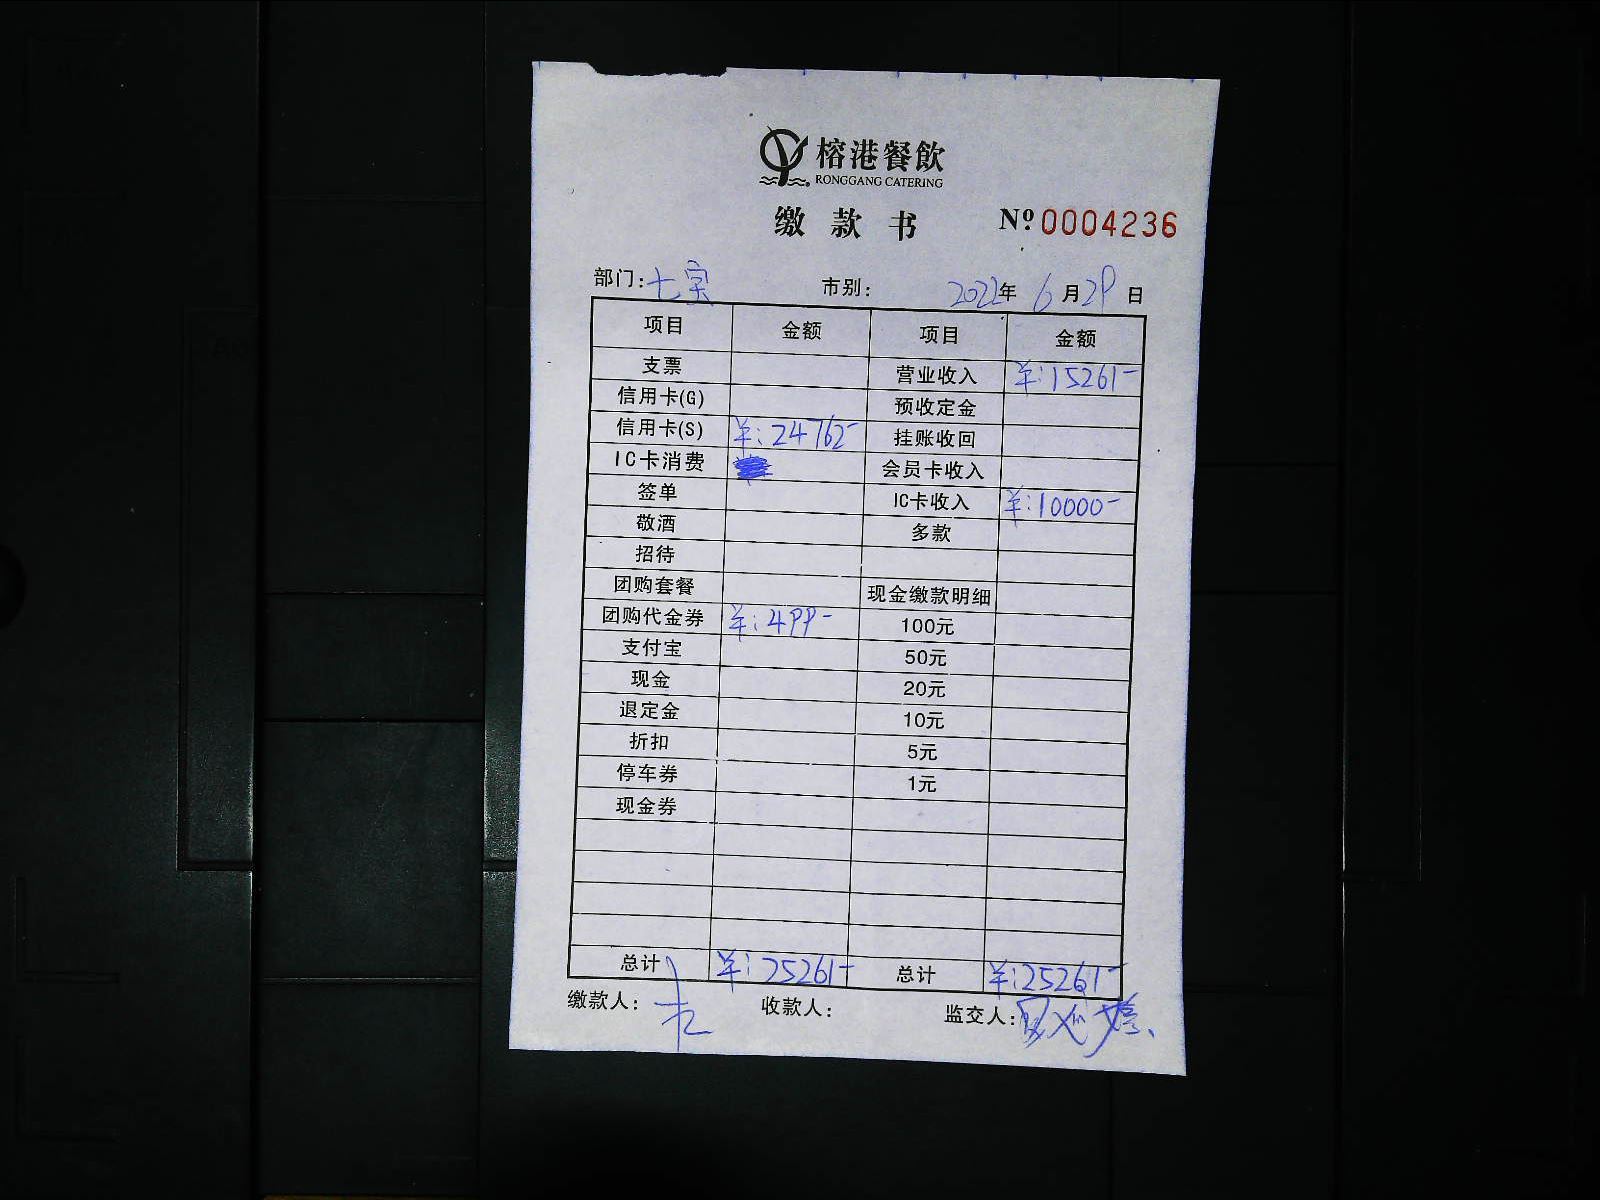 榕港餐飲
RONGGANG CATERING
缴款书 Nº 0004236
部门: 七宝 市别: 2022年 6月29日
项目 金额 项目 金额
支票 营业收入 ¥:15261-
信用卡(G) 预收定金
信用卡(S) ¥:24762- 挂账收回
IC卡消费 会员卡收入
签单 IC卡收入 ¥:10000-
敬酒 多款
招待
团购套餐 现金缴款明细
团购代金券 ¥:499- 100元
支付宝 50元
现金 20元
退定金 10元
折扣 5元
停车券 1元
现金券
总计 ¥:25261- 总计 ¥:25261-
缴款人: 收款人: 监交人: